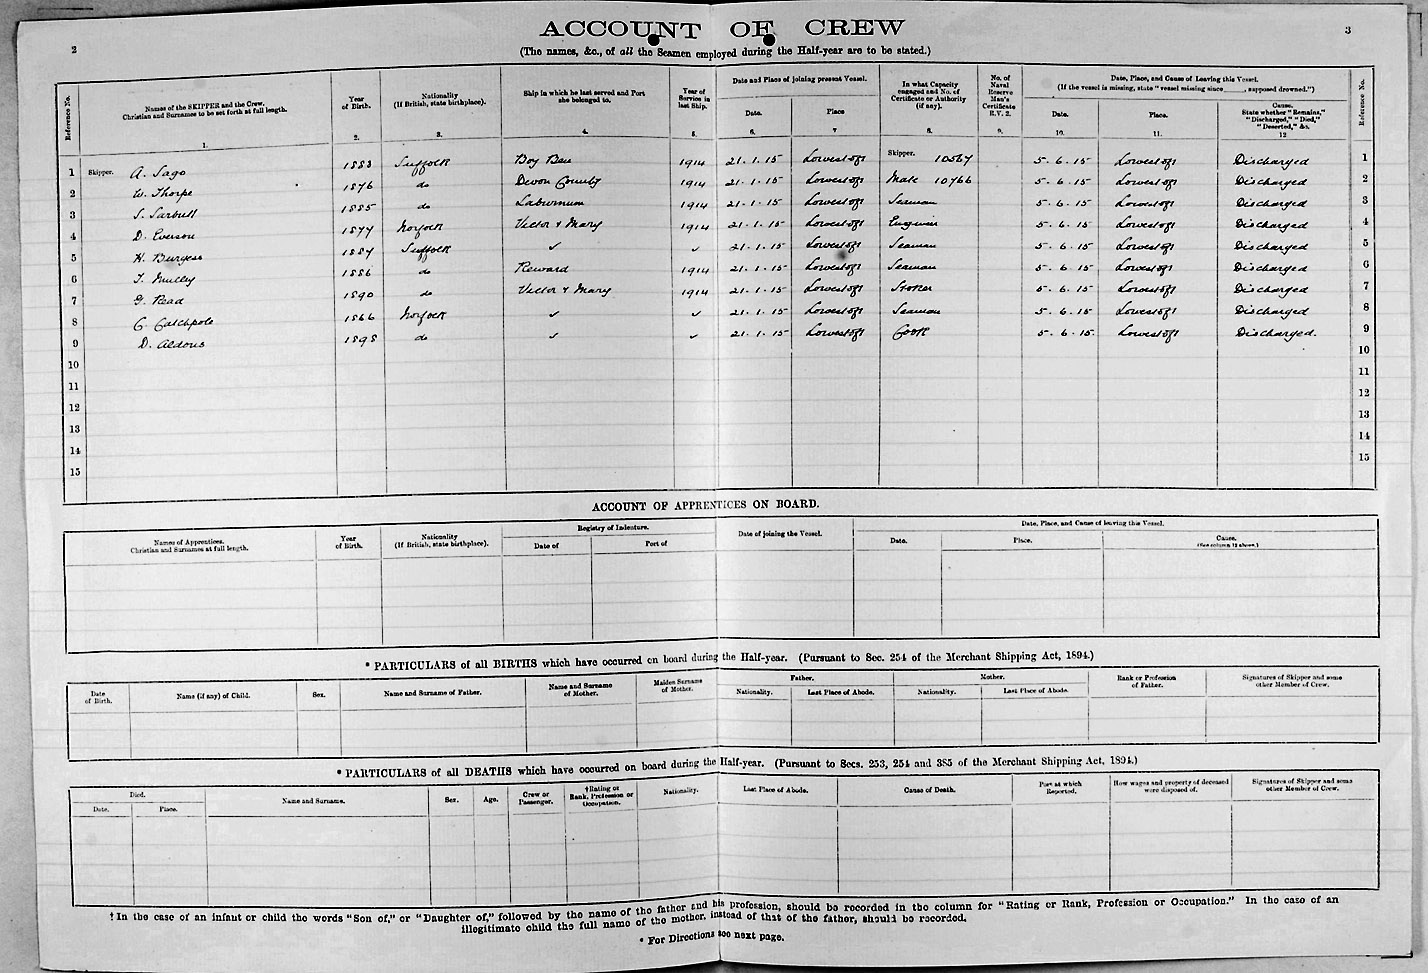 ACCOUNT OF CREW
2
3
(The names, &c., of all the Seamen employed during the Half-year are to be stated.)
Reference No.
Names of the SKIPPER and the Crew.
Christian and Surnames to be set forth at full length.
1.
Year
of Birth.
2.
Nationality
(If British, state birthplace).
3.
Ship in which he last served and Port
she belonged to.
4.
Year of
Service in
last Ship.
5.
Date and Place of joining present Vessel.
Date.
6.
Place
7
In what Capacity
engaged and No. of
Certificate or Authority
(if any).
8.
No. of
Naval
Reserve
Man's
Certificate
R.V. 2.
9.
Date, Place, and Cause of Leaving this Vessel.
(If the vessel is missing, state "vessel missing since ____, supposed drowned.")
Date.
10.
Place.
11.
Cause.
State whether "Remains,"
"Discharged," "Died,"
"Deserted," &c.
12
Reference No.
1 Skipper. A. Sago 1883 Suffolk Boy Ben 1914 21.1.15 Lowestoft Skipper. 10567 5.6.15 Lowestoft Discharged 1
2 W. Thorpe 1876 do Devon County 1914 21.1.15 Lowestoft Mate 10766 5.6.15 Lowestoft Discharged 2
3 S. 1885 do Laburnum 1914 21.1.15 Lowestoft Seaman 5.6.15 Lowestoft Discharged 3
4 D. Everson 1877 Norfolk Victor & Mary 1914 21.1.15 Lowestoft Engineer 5.6.15 Lowestoft Discharged 4
5 H. Burgess 1887 Suffolk ✓ ✓ 21.1.15 Lowestoft Seaman 5.6.15 Lowestoft Discharged 5
6 1886 do Reward 1914 21.1.15 Lowestoft Seaman 5.6.15 Lowestoft Discharged 6
7 G. Read 1890 do Victor & Mary 1914 21.1.15 Lowestoft Stoker 5.6.15 Lowestoft Discharged 7
8 C. Catchpole 1866 Norfolk ✓ ✓ 21.1.15 Lowestoft Seaman 5.6.15 Lowestoft Discharged 8
9 D. Aldous 1898 do ✓ ✓ 21.1.15 Lowestoft Cook 5.6.15 Lowestoft Discharged. 9
10 10
11 11
12 12
13 13
14 14
15 15
ACCOUNT OF APPRENTICES ON BOARD.
Names of Apprentices.
Christian and Surnames at full length.
Year
of Birth.
Nationality
(If British, state birthplace).
Registry of Indenture.
Date of
Port of
Date of joining the Vessel.
Date, Place, and Cause of leaving this Vessel.
Date.
Place.
Cause.
(See column 12 above.)
* PARTICULARS of all BIRTHS which have occurred on board during the Half-year. (Pursuant to Sec. 254 of the Merchant Shipping Act, 1894.)
Date
of Birth.
Name (if any) of Child.
Sex.
Name and Surname of Father.
Name and Surname
of Mother.
Maiden Surname
of Mother.
Father.
Nationality.
Last Place of Abode.
Mother.
Nationality.
Last Place of Abode.
Rank or Profession
of Father.
Signatures of Skipper and some
other Member of Crew.
* PARTICULARS of all DEATHS which have occurred on board during the Half-year. (Pursuant to Secs. 253, 254 and 385 of the Merchant Shipping Act, 1894.)
Died.
Date.
Place.
Name and Surname.
Sex.
Age.
Crew or
Passenger.
†Rating or
Rank, Profession or
Occupation.
Nationality.
Last Place of Abode.
Cause of Death.
Port at which
Reported.
How wages and property of deceased
were disposed of.
Signatures of Skipper and some
other Member of Crew.
† In the case of an infant or child the words "Son of," or "Daughter of," followed by the name of the father and his profession, should be recorded in the column for "Rating or Rank, Profession or Occupation." In the case of an
illegitimate child the full name of the mother, instead of that of the father, should be recorded.
* For Directions see next page.